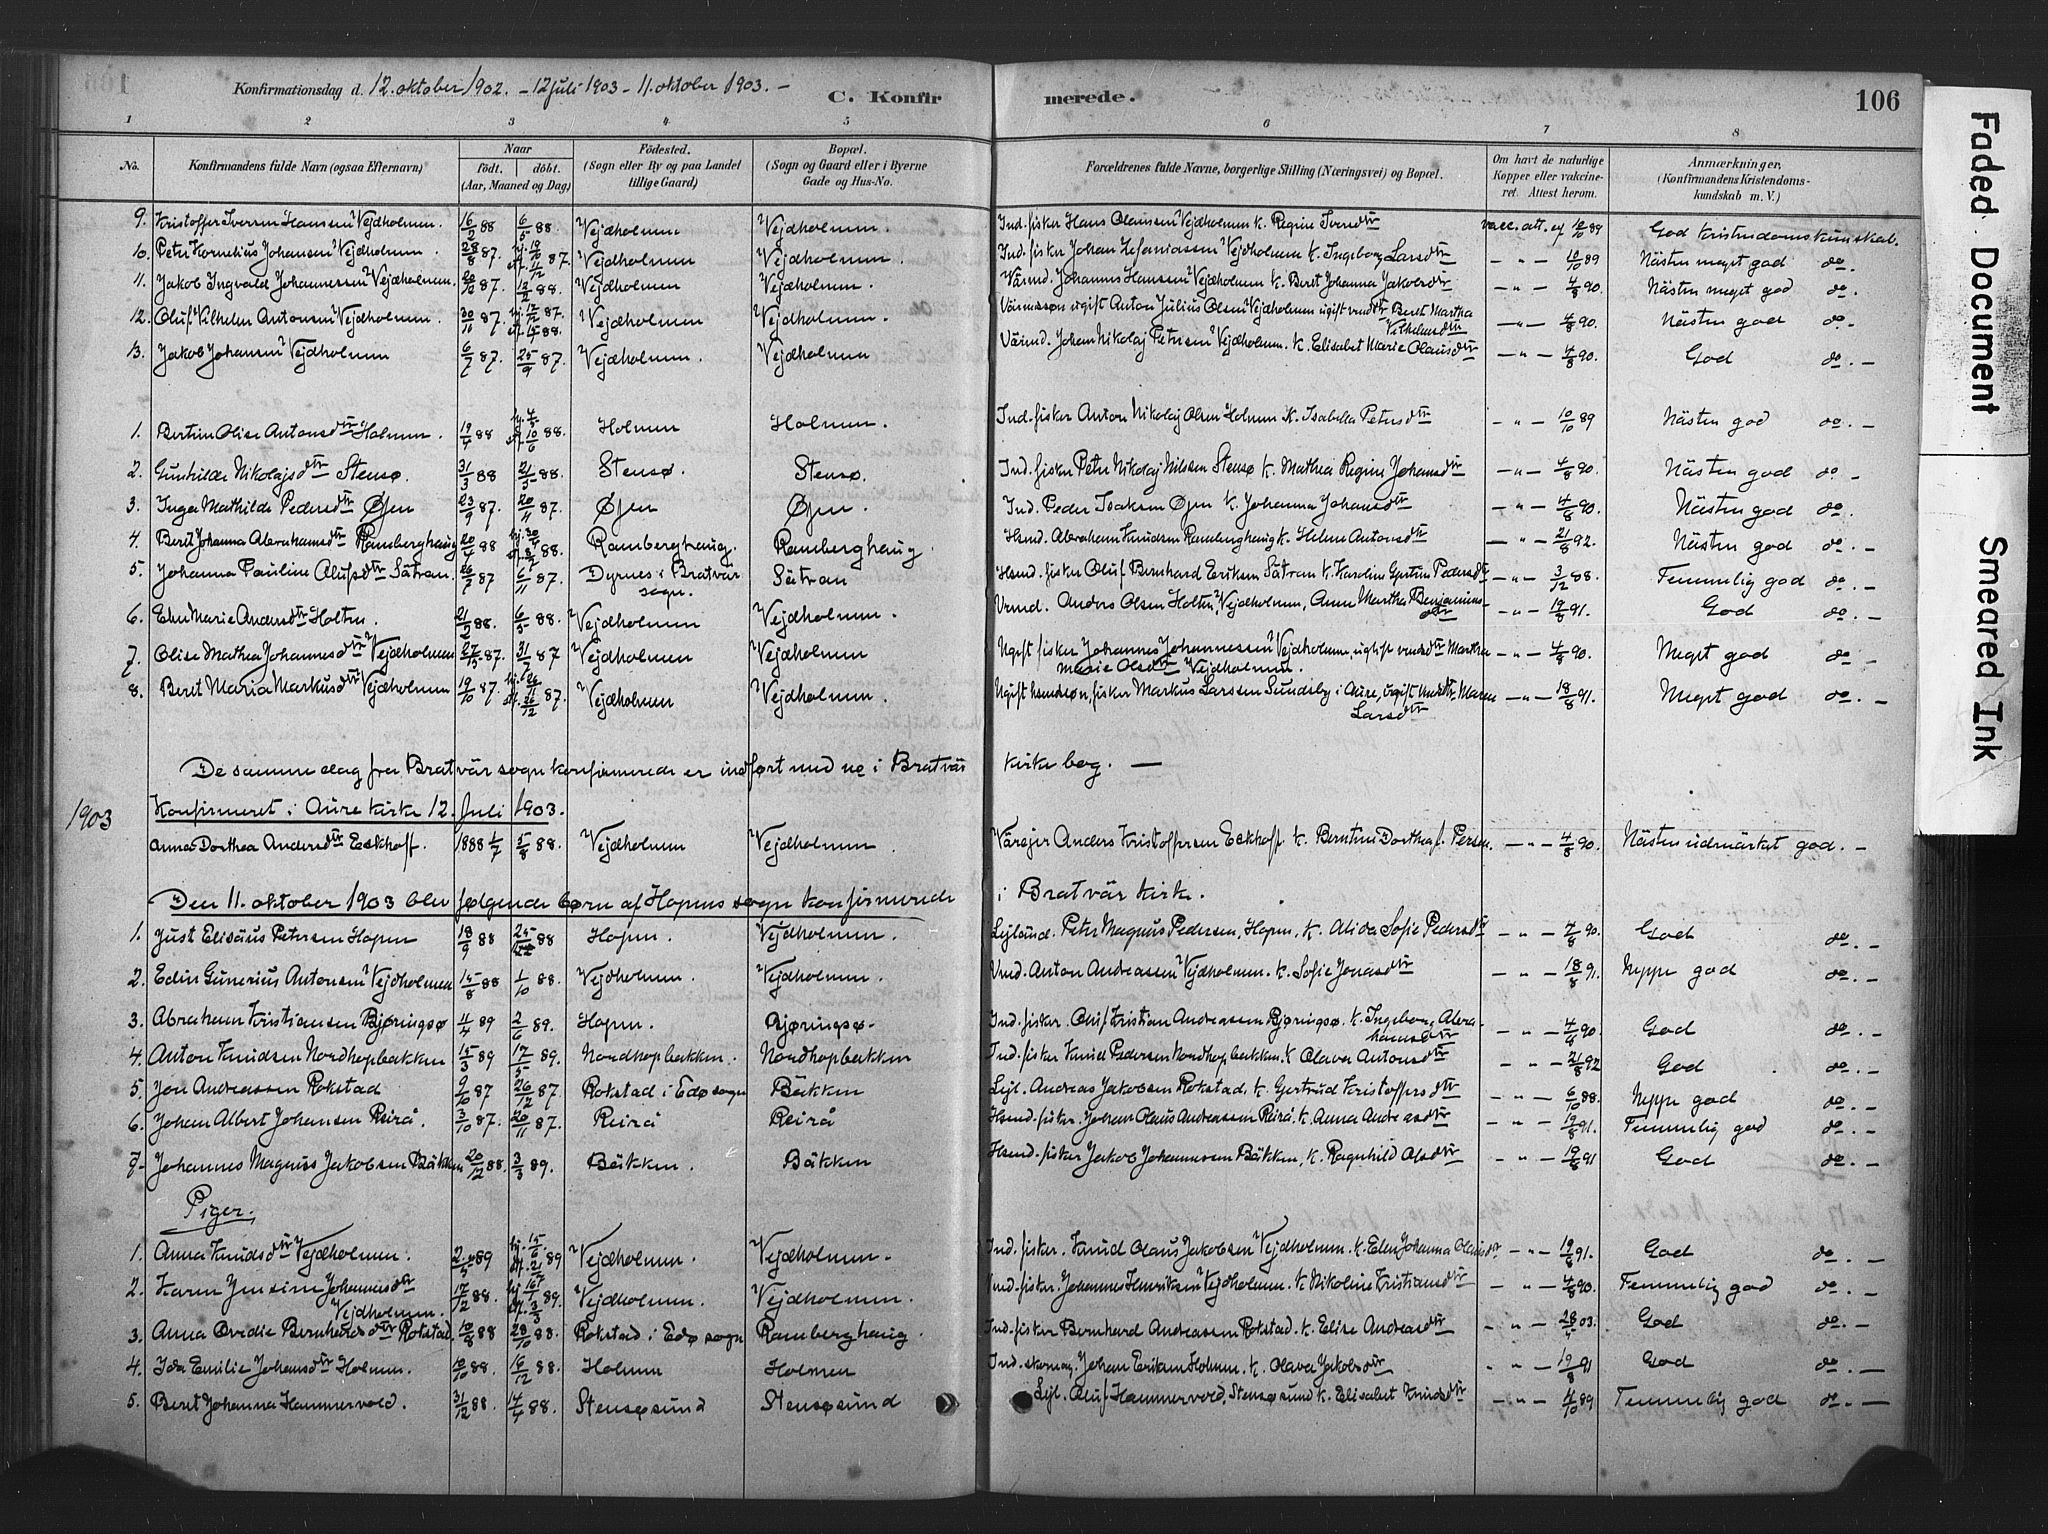 Konfirmationsdag d. 12. oktober 1902. - 12 juli 1903 - 11. oktober 1903. -
C. Konfirmerede.
106
1 2 3 4 5 6 7 8
No. Konfirmandens fulde Navn (ogsaa Efternavn) Naar født. døbt. (Aar, Maaned og Dag) Födested. (Sogn eller By og paa Landet tillige Gaard) Bopæl. (Sogn og Gaard eller i Byerne Gade og Hus-No. Forældrenes fulde Navne, borgerlige Stilling (Næringsvei) og Bopæl. Om havt de naturlige Kopper eller vakcineret. Attest herom. Anmærkninger, (Konfirmandens Kristendomskundskab m. V.)
9. Kristoffer Iversen Hansen Vejdholmen. 16/2 88 6/5 88. Vejdholmen Vejdholmen. Ind. fisker Hans Olaussen Vejdholmen k. Regine Iversdtr vacc. att. af 10/10 89 God kristendomskunskab.
10. Peter Kornelius Johansen Vejdholmen. 28/8 87. hj. 18/10 st. 11/12 87. Vejdholmen Vejdholmen. Ind. fisker Johan Zefaniassen Vejdholmen k. Ingeborg Larsdtr - " - 10/10 89 Nästen meget god do. -
11. Jakob Ingvald Johannessen Vejdholmen. 20/10 87. 12/2 88. Vejdholmen Vejdholmen. Värmd. Johannes Hanssen Vejdholmen k. Beret Johanna Jakobsdtr - " - 4/8 90. Nästen meget god do.
12. Oluf Vilhelm Antonsen Vejdholmen. 30/11 87 hj. 17/12 87. st. 15/4 88. Vejdholmen Vejdholmen. Värmssøn ugift Anton Julius Olsen Vejdholmen ugift vmdtr Beret Martha Vilhelmsdtr - " - 4/8 90. Nästen god do. -
13. Jakob Johansen Vejdholmen 6/7 87. 25/9 87. Vejdholmen. Vejdholmen Värmd. Johan Nikolaj Petersen Vejdholmen. k. Elisabet Marie Olausdtr - " - 4/8 90. God do. -
1. Bertine Olise Antonsdtr Holmen. 19/4 88 st. 10/6 88. Holmen Holmen. Ind. fisker Anton Nikolaj Olsen Holmen k. Isabella Petersdtr - " - 10/10 89 Nästen god do. -
2. Gunhilde Nikolajsdtr Stensø. 31/3 88 21/5 88. Stensø. Stensø. Ind. fisker Peter Nikolaj Nilssen Stensø k. Mathea Regine Johansdtr - " - 4/8 90. Nästen god do -
3. Inga Mathilde Pedersdtr Øjen 23/9 87. 20/11 87. Øjen Øjen. Ind. Peder Isaksen Øjen k. Johanna Johansdtr - " - 4/8 90. Nästen god do.
4. Beret Johanna Abrahamsdtr Ramberghaug 20/4 88 88. Ramberghaug. Ramberghaug. Hsmd. Abraham Knudsen Ramberghaug k. Helene Antonsdtr - " - 21/8 92. Nästen god do. -
5. Johanna Pauline Olufsdtr Sätran. 26/7 87 6/11 87. Dyrnes i Bratvär sogn. Sätran Hsmd. fisker Oluf Bernhard Eriksen Sätran k. Karoline Gjertine Pedersdtr - " - 3/12 88. Temmelig god do. -
6. Elen Marie Andersdtr Holten. 21/2 88. 6/5 88. Vejdholmen Vejdholmen. Vrmd. Anders Olsen Holten, Vejdholmen, Anne Martha Benjaminsdtr - " - 19/8 91. God do.
7. Olise Mathea Johannesdtr Vejdholmen 87. 31/7 87 Vejdholmen Vejdholmen Ugift fisker Johannes Johannessen Vejdholmen, ugift vrmdsdtr Martha Marie Olsdtr Vejdholmen. - " - 4/8 90. Meget god do -
8. Beret Maria Markusdtr Vejdholmen 19/10 87. st. 26/12 87. Vejdholmen Vejdholmen. Ugift hsmdssøn, fisker Markus Larssen Sundsby i Aure, ugift vmdsdtr Maren Larsdtr - " - 18/8 91. Meget god do. -
De samme dag fra Bratvär sogn konfirmerede er indført med no i Bratvär kirkebog. -
1903
Konfirmeret i Aure kirke 12. juli 1903.
Anna Dorthea Andersdtr Eckhoff. 1888 1/7 5/8 88. Vejdholmen Vejdholmen. Värejer Anders Kristoffersen Eckhoff k. Bentine Dorthea f. Persen. - " - 4/8 90. Nästen udmärket god. -
Den 11. oktober 1903 blev følgende børn af Hopens sogn konfirmerede i Bratvär kirke.
1. Just Elisäus Petersen Hopen 18/9 88 88 Hopen. Vejdholmen. Lejländ. Peter Magnus Pedersen, Hopen, k. Alida Sofie Pedersdtr - " - 4/8 90. God do. -
2. Edin Gunerius Antonsen Vejdholmen 15/8 88 1/10 88. Vejdholmen. Vejdholmen. Vmd. Anton Andreassen Vejdholmen. k. Sofie Jonasdtr - " - 18/8 91. Neppe god do. -
3. Abraham Kristiansen Bjøringsø 11/4 89 2/6 89. Hopen. Bjøringsø. Ind. fisker. Oluf Kristian Andreassen Bjøringsø. k. Ingeborg Abrahamsdtr - " - 4/8 90. God do. -
4. Anton Knudsen Nordhopbakken 15/3 89 17/5 89. Nordhopbakken. Nordhopbakken Ind. fisker Knud Pedersen Nordhopbakken. k. Olava Antonsdtr - " - 21/8 92 God do. -
5. Jon Andreassen Rokstad 9/10 87 26/12 87. Rokstad i Edø sogn Bäkken Lejl. Andreas Jakobsen Rokstad. k. Gjertrud Kristoffersdtr - " - 6/10 88. Neppe god do. -
6. Johan Albert Johansen Reirå. 3/10 87. 20/11 87. Reirå Reirå Hsmd. fisker. Johan Olaus Andreassen Reirå k. Anna Andreasdtr - " - 19/8 91. Temmelig god do. -
7. Johannes Magnus Jakobsen Bäkken 20/12 88. 3/3 89. Bäkken. Bäkken Hsmd. fisker Jakob Johannessen Bäkken, k. Ragnhild Olsdtr - " - 19/8 91 God do. -
Piger.
1. Anna Knudsdtr Vejdholmen. 2/5 89 hj. 15/6 89 Vejdholmen. Vejdholmen. Ind. fisker. Knud Olaus Jakobsen Vejdholmen. k. Elen Johanna Olausdtr - " - 19/8 91. God do -
2. Karen Jensine Johannesdtr Vejdholmen. 17/12 88. st. 3/3 89. Vejdholmen. Vejdholmen. Vmd. fisker. Johannes Henriksen Vejdholmen. k. Nikoline Kristiansdtr - " - 4/8 90. Temmelig god do. -
3. Anna Ovedie Bernhardsdtr Rokstad. 10/8 88 28/10 88. Rokstad i Edø sogn Ramberghaug. Ind. fisker Bernhard Andreassen Rokstad. k. Elise Andreasdtr - " - 28/5 03. God do. -
4. Ida Emilie Johansdtr Holmen. 10/10 88. 16/12 88. Holmen Holmen Ind. skomag. Johan Eriksen Holmen. k. Olava Jakobsdtr - " - 19/8 91 God do. -
5. Beret Johanna Hammervold. 31/12 88. 14/4 88. Stensøsund Stensøsund Lejl. Oluf Hammervold, Stensøsund k. Elisabet Knudsdtr - " - 4/10 89 Temmelig god do. -
Faded Document
Smeared Ink